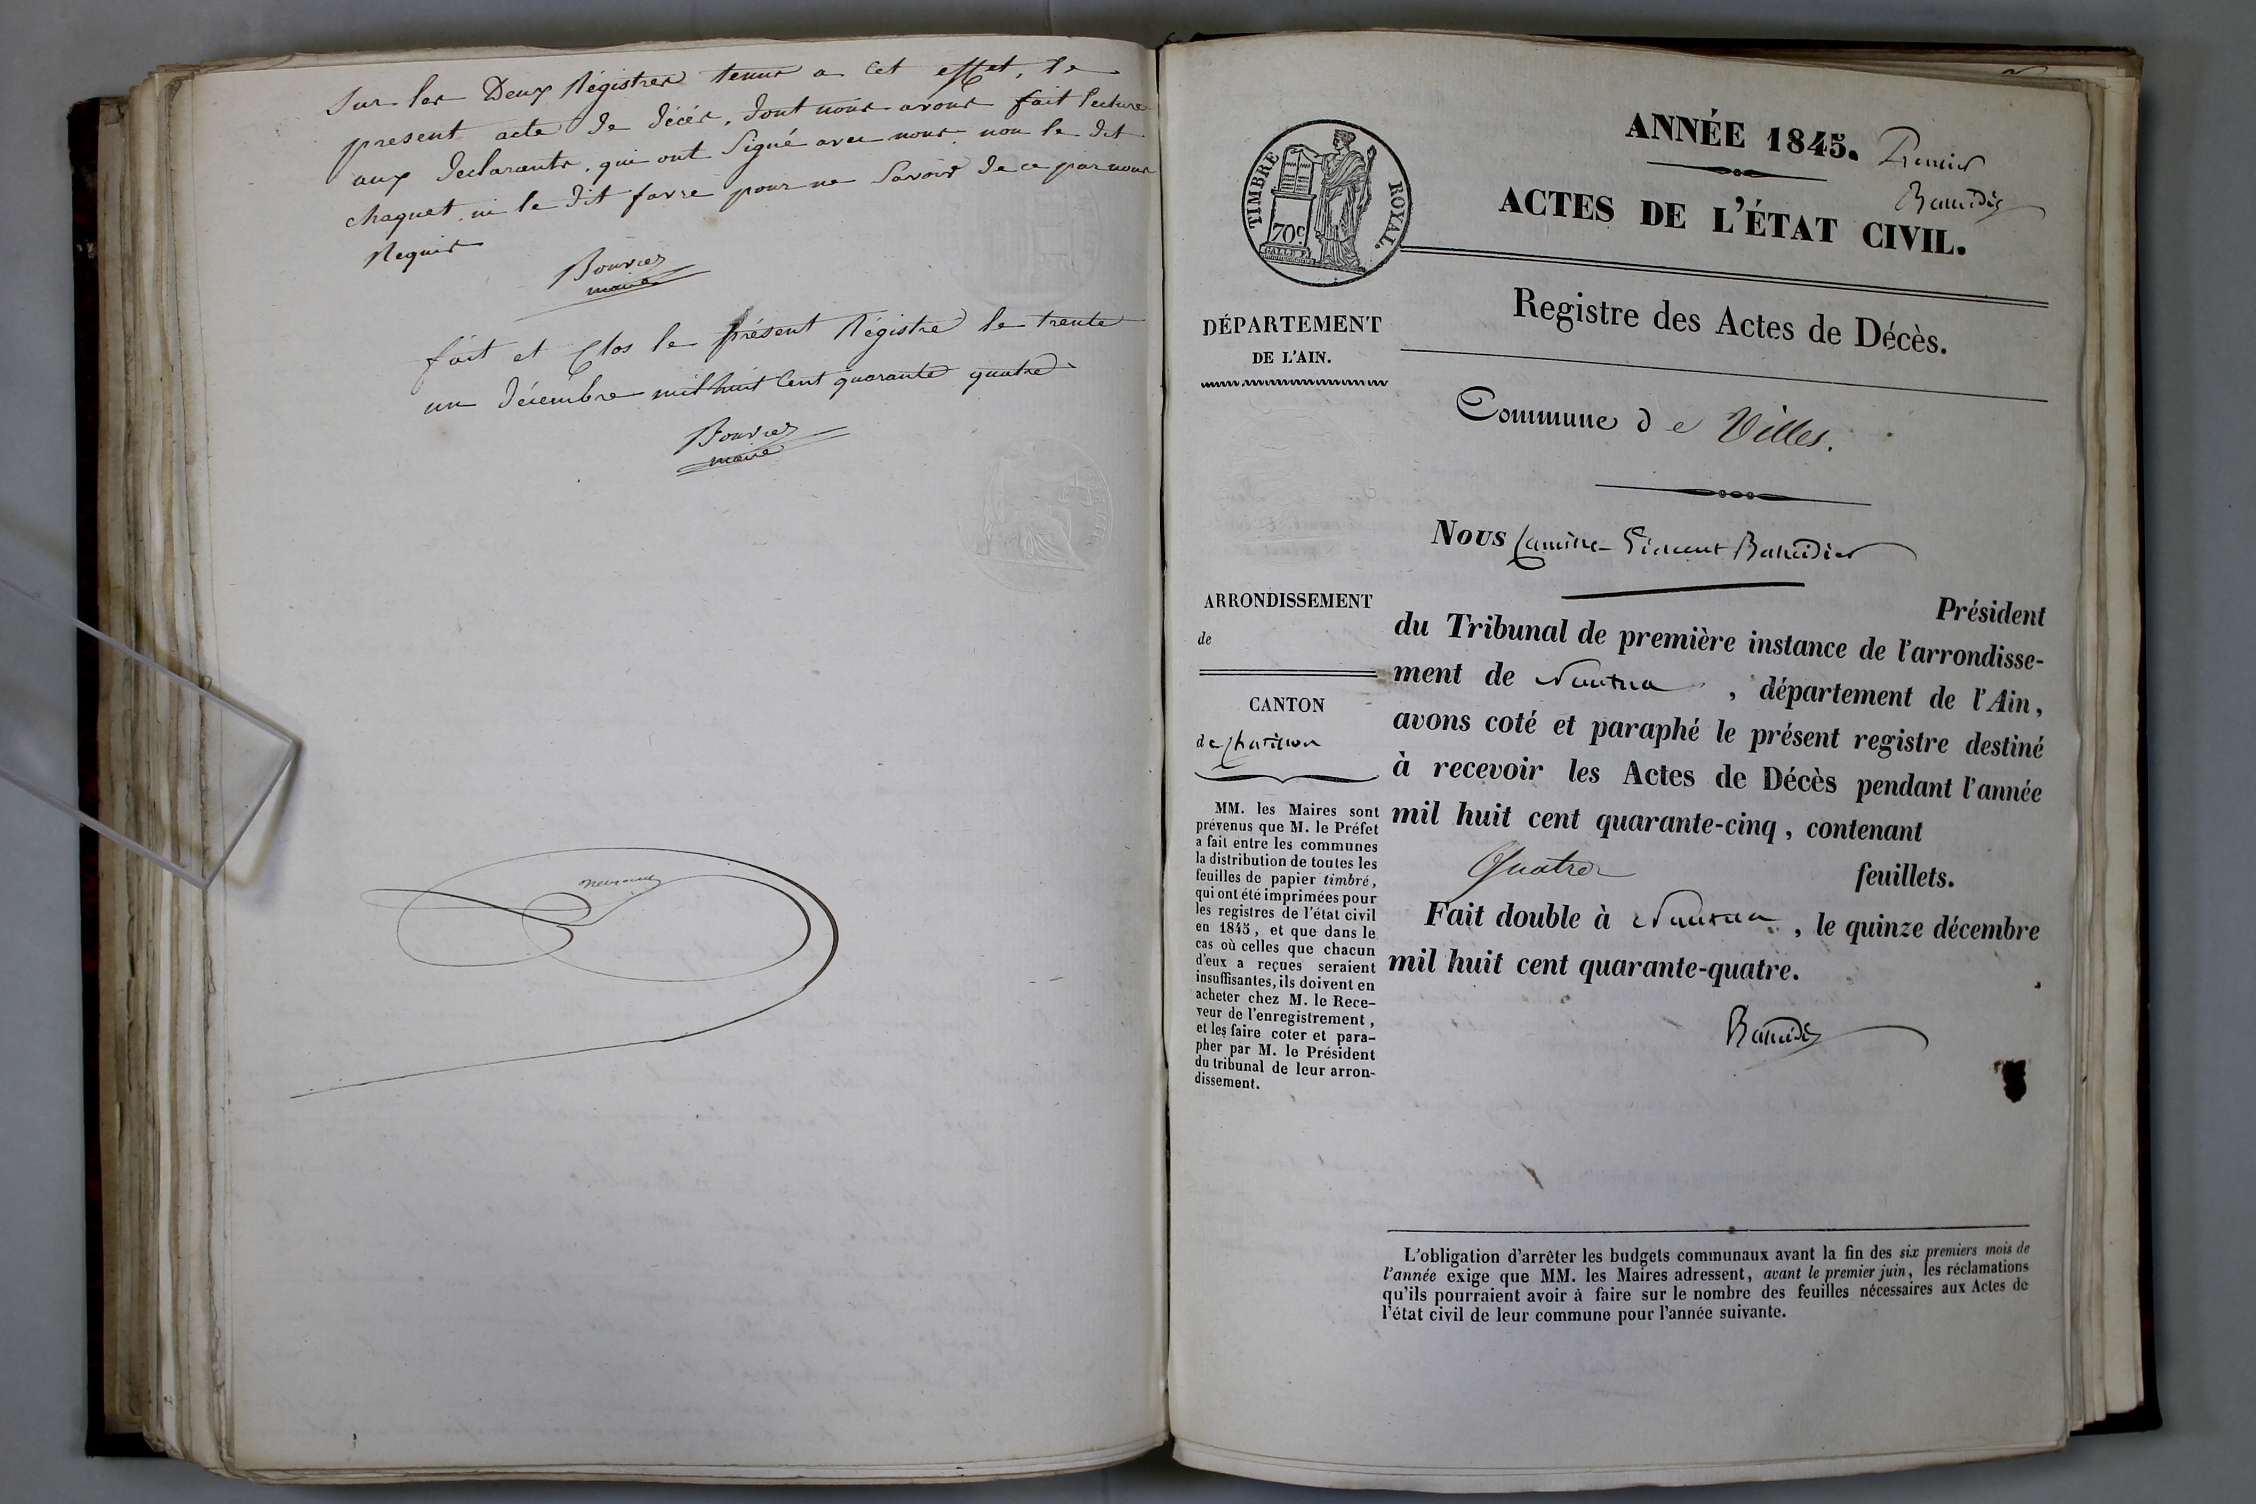 Sur les Deux Régistres tenus a Cet effet, le
present acte de décés, dont nous avons fait lecture
aux declarants, qui ont Signé avec nous, non le dit
chaquet, ni le dit favre pour ne Savoir de ce par nous
Requis
Bouvier
maire
fait et Clos le présent Régistre le trente
un décembre mil huit Cent quarante quatre
Bouvier
maire
ANNÉE 1845.
Premier
ACTES DE L'ÉTAT CIVIL.
TIMBRE ROYAL.
70c
Registre des Actes de Décès.
DÉPARTEMENT
DE L'AIN.
Commune de Villes.
Nous
ARRONDISSEMENT
de
CANTON
de Chatillon
MM. les Maires sont
prévenus que M. le Préfet
a fait entre les communes
la distribution de toutes les
feuilles de papier timbré,
qui ont été imprimées pour
les registres de l'état civil
en 1845, et que dans le
cas où celles que chacun
d'eux a reçues seraient
insuffisantes, ils doivent en
acheter chez M. le Rece-
veur de l'enregistrement,
et les faire coter et para-
pher par M. le Président
du tribunal de leur arron-
dissement.
Président
du Tribunal de première instance de l'arrondisse-
ment de Nantua, département de l'Ain,
avons coté et paraphé le présent registre destiné
à recevoir les Actes de Décès pendant l'année
mil huit cent quarante-cinq, contenant
Quatre feuillets.
Fait double à Nantua, le quinze décembre
mil huit cent quarante-quatre.
L'obligation d'arrêter les budgets communaux avant la fin des six premiers mois de
l'année exige que MM. les Maires adressent, avant le premier juin, les réclamations
qu'ils pourraient avoir à faire sur le nombre des feuilles nécessaires aux Actes de
l'état civil de leur commune pour l'année suivante.